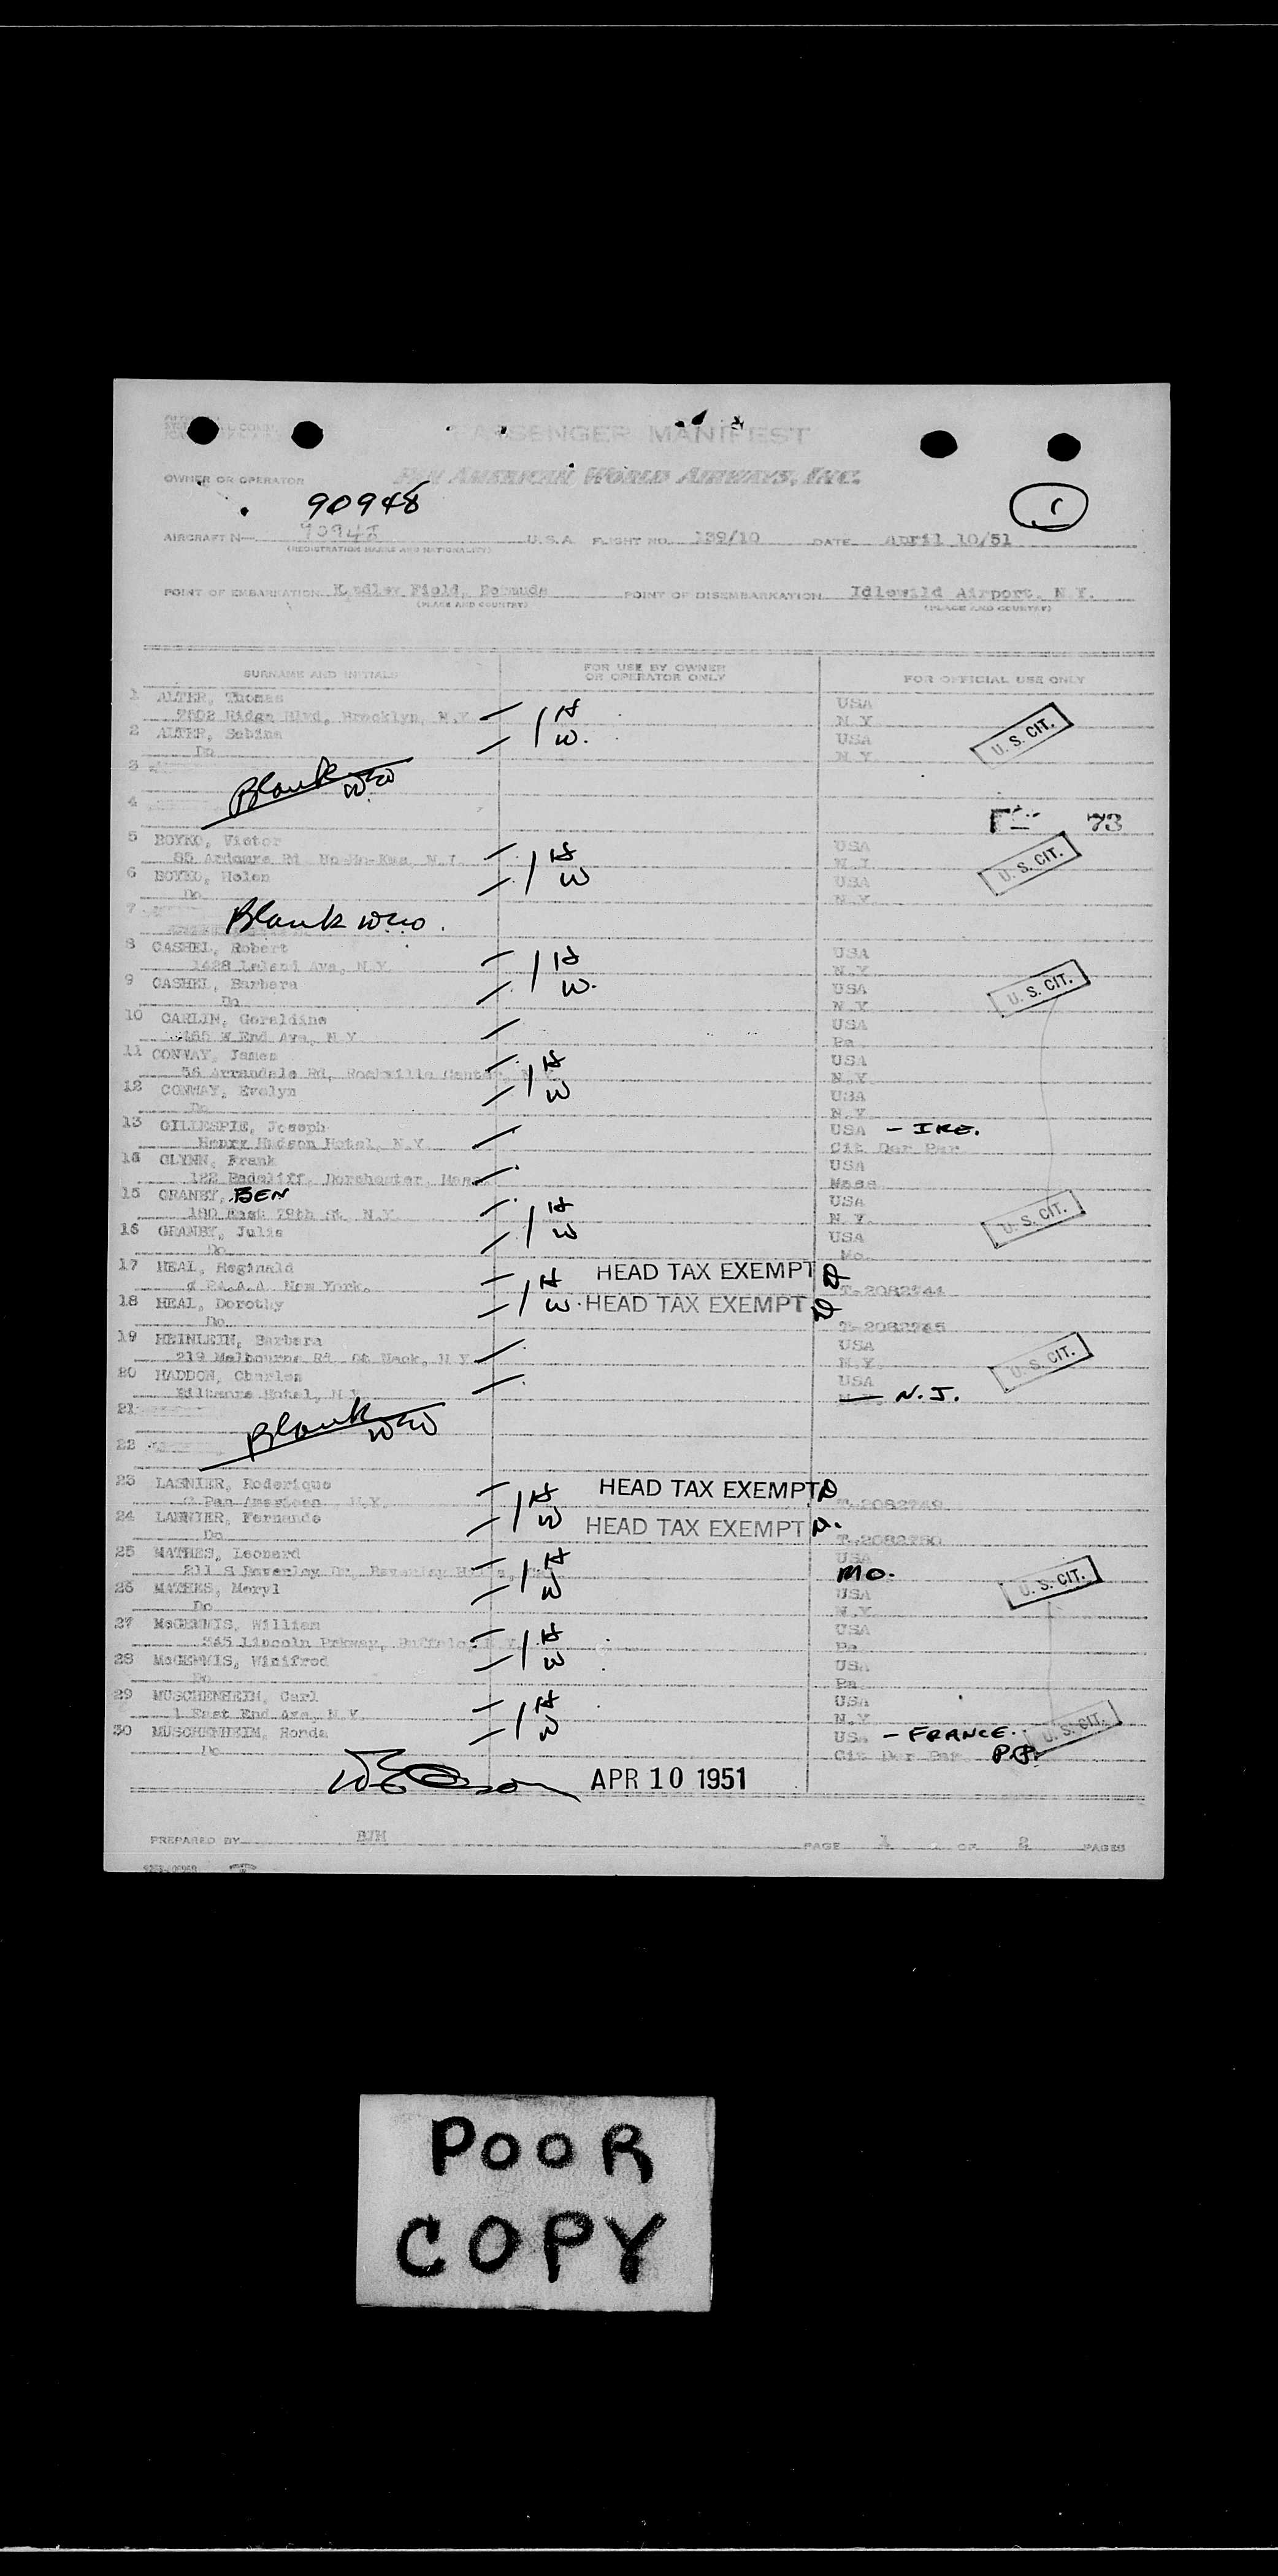 PASSENGER MANIFEST
PAN AMERICAN WORLD AIRWAYS, INC.
OWNER OR OPERATOR
90948
AIRCRAFT N— U.S.A. FLIGHT NO. 139/10 DATE April 10/51
(REGISTRATION MARKS AND NATIONALITY)
POINT OF EMBARKATION Kindley Field, Bermuda POINT OF DISEMBARKATION Idlewild Airport, N.Y.
(PLACE AND COUNTRY) (PLACE AND COUNTRY)
SURNAME AND INITIALS FOR USE BY OWNER OR OPERATOR ONLY FOR OFFICIAL USE ONLY
1 ALTER, Thomas USA
7502 Ridge Blvd, Brooklyn, N.Y. 1 H N.Y.
2 ALTER, Sabina W. USA U. S. CIT.
Do N.Y.
3 Blank
4
73
5 BOYKO, Victor USA
85 Ardmore Rd N.J. 1 H N.J. U. S. CIT.
6 BOYKO, Helen W USA
Do N.Y.
7 Blank
8 CASHEL, Robert USA
1428 Leland Ave, N.Y. 1 H N.Y.
9 CASHEL, Barbara W. USA U. S. CIT.
Do N.Y.
10 CARLIN, Geraldine USA
W End Ave, N.Y. Pa.
11 CONWAY, James USA
56 Arrandale Rd, Rockville Center, N.Y. 1 H N.Y.
12 CONWAY, Evelyn W USA
Do N.Y.
13 GILLESPIE, Joseph USA — IRE.
Henry Hudson Hotel, N.Y. Cit Der Par
14 GLYNN, Frank USA
122 Radcliff, Dorchester, Mass. Mass
15 GRANBY, BEN USA
180 East 79th St. N.Y. 1 H N.Y. U. S. CIT.
16 GRANBY, Julia W USA
Do Mo.
17 HEAL, Reginald HEAD TAX EXEMPT
P.A.A.A. New York. 1 H T-2082744
18 HEAL, Dorothy W. HEAD TAX EXEMPT
Do T-2082745
19 HEINLEIN, Barbara USA
219 Melbourne Rd Gt Neck, N.Y. N.Y. U. S. CIT.
20 HADDON, Charles USA
Biltmore Hotel, N.Y. — N.J.
21 Blank
22
23 LASNIER, Roderique HEAD TAX EXEMPT
Pan American N.Y. 1 H T-2082749
24 LASNIER, Fernande W HEAD TAX EXEMPT
Do T-2082750
25 MATHES, Leonard USA
211 S Beverley Dr, Beverley Hills, 1 H MO. U. S. CIT.
26 MATHES, Meryl W USA
Do N.Y.
27 McGENNIS, William USA
345 Lincoln Prkway, Buffalo, N.Y. 1 H Pa.
28 McGENNIS, Winifred W USA
Do Pa.
29 MUSCHENHEIM, Carl USA
1 East End Ave, N.Y. 1 H N.Y.
30 MUSCHENHEIM, Ronda W USA — FRANCE. U. S. CIT.
Do Cit Der Par P.P.
APR 10 1951
PREPARED BY BJM PAGE 1 OF 2 PAGES
POOR
COPY